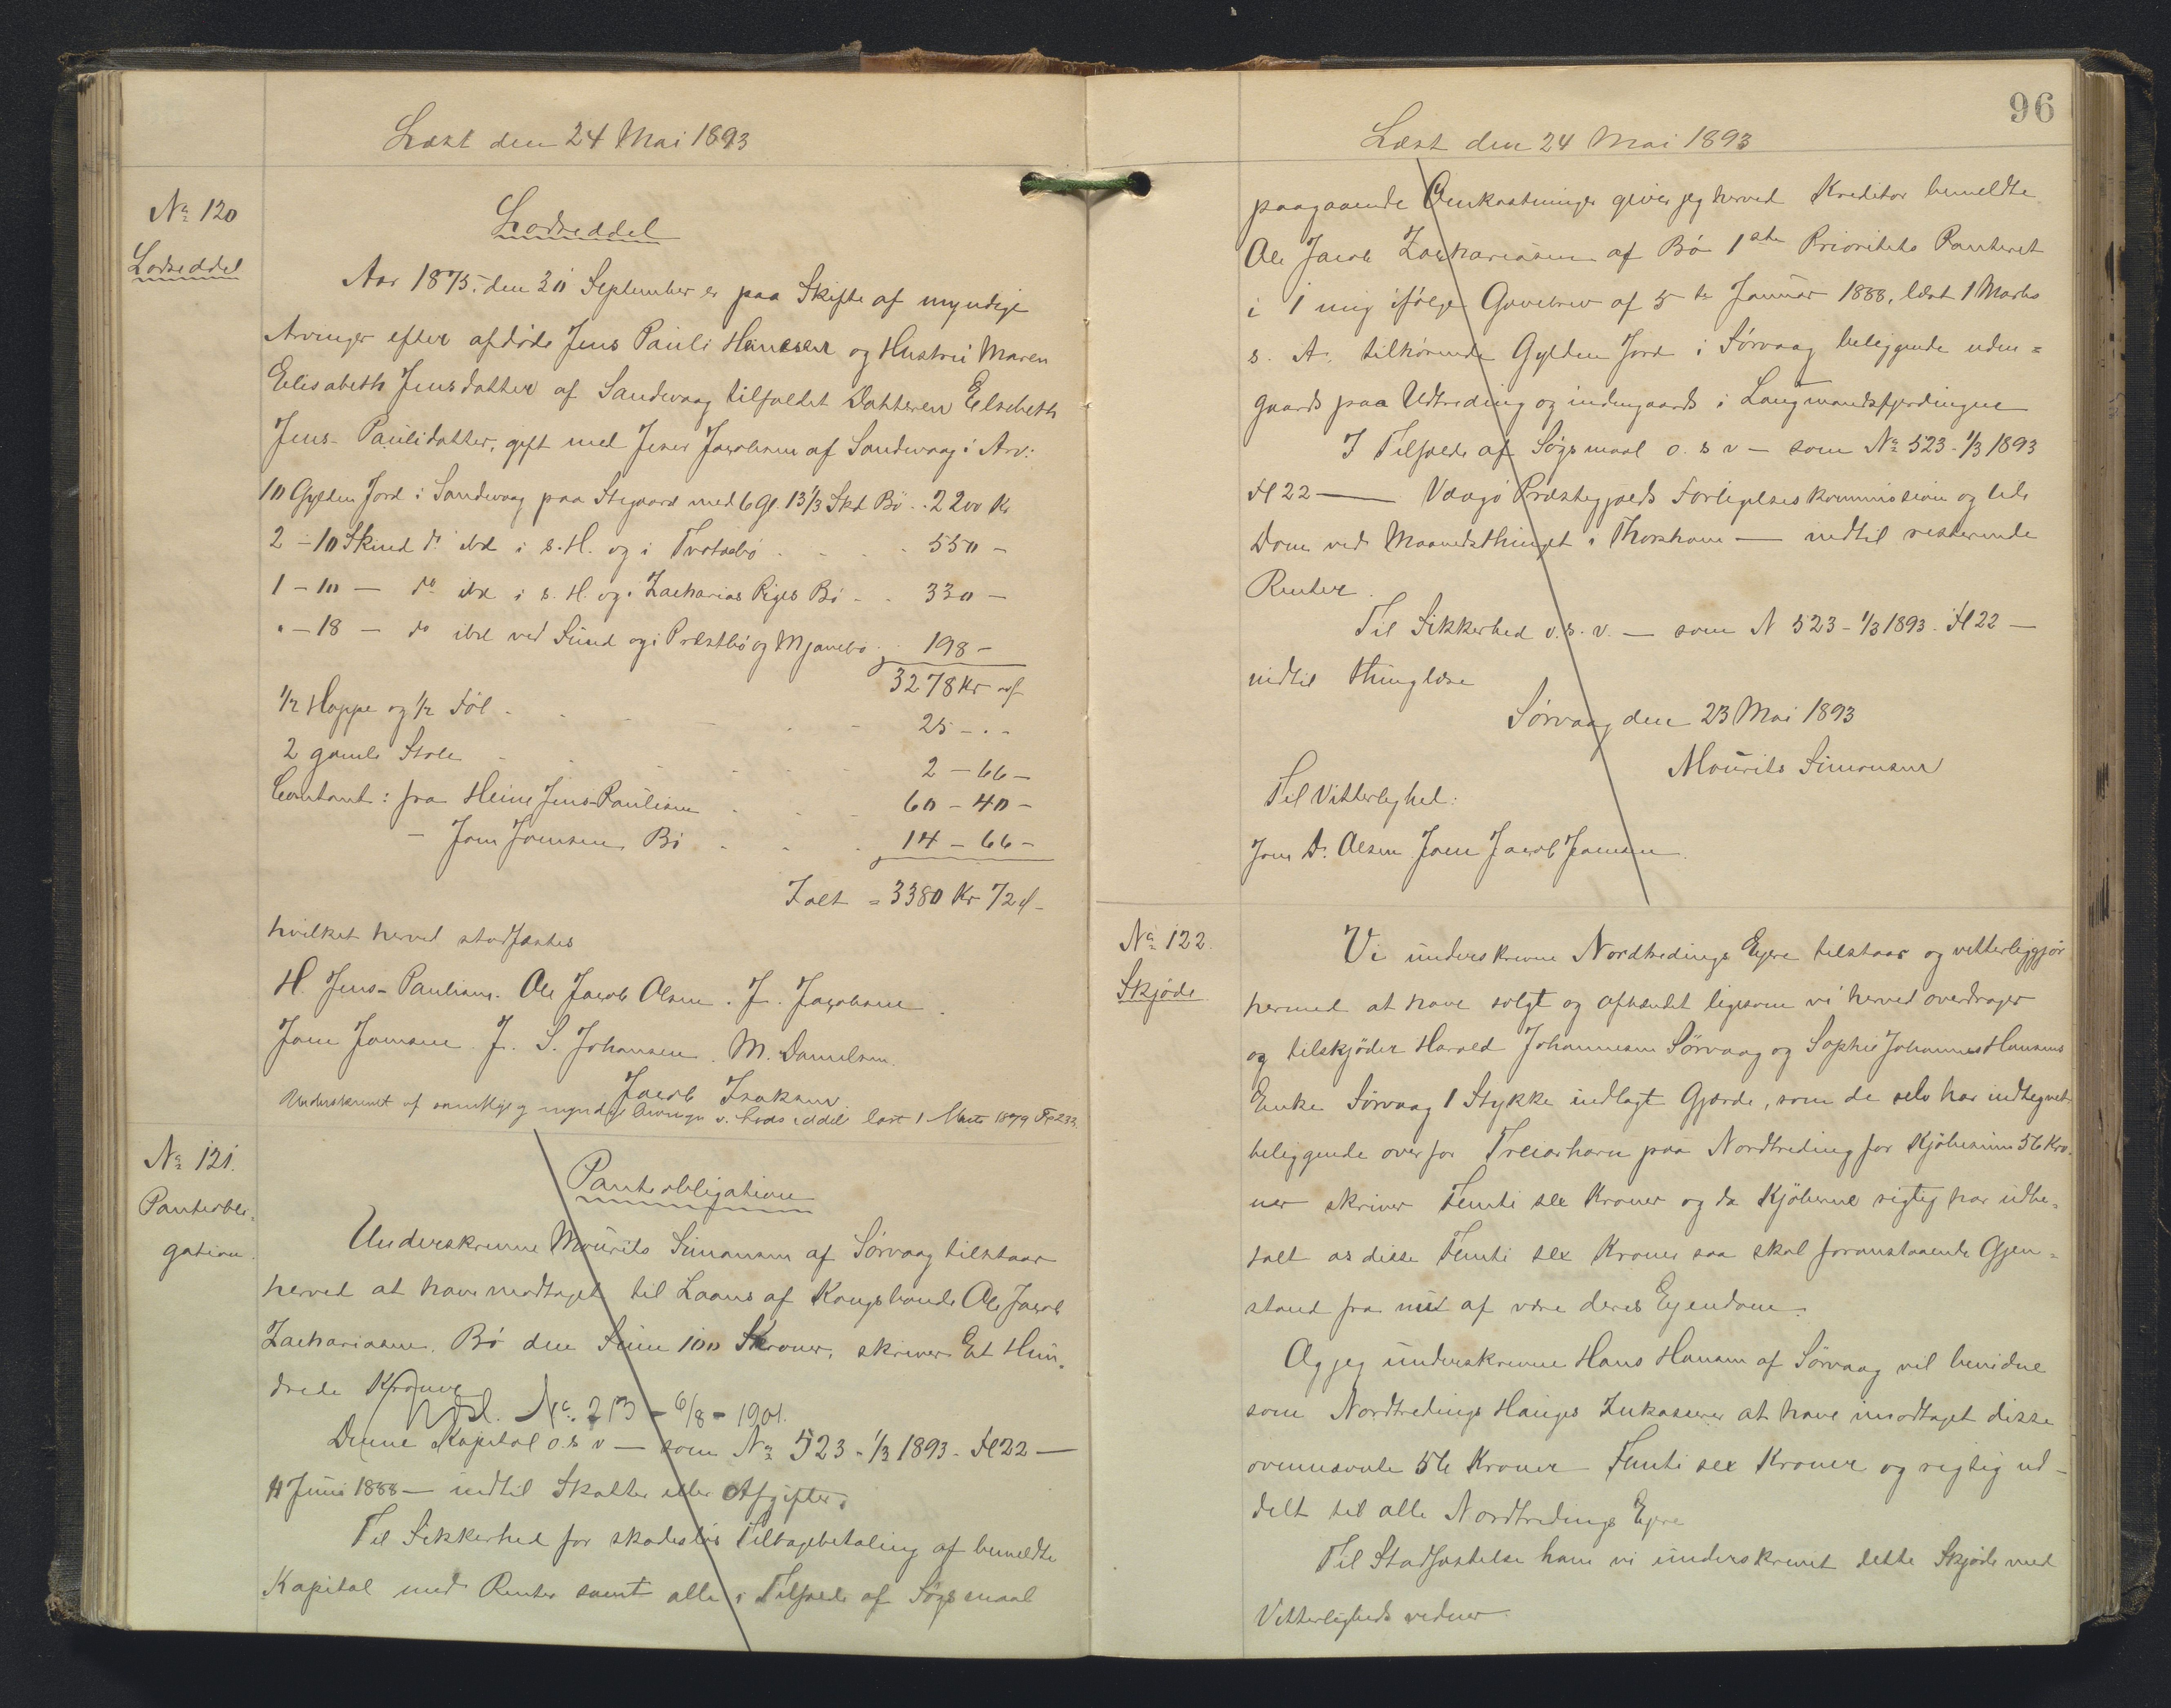 Læst den 24 Mai 1893
No 120
Lodseddel
Lodseddel
Aar 1875 den 30 September er paa Skifte af myndige
Arvinger efter afdøde Jens Pauli Hanesen og Hustru Maren
Elisabeth Jensdatter af Sandevaag tilfaldet Datteren Elsebeth
Jens-Paulidatter, gift med Jens Jacobsen af Sandevaag i Arv:
10 Gylden Jord i Sandevaag paa Stegaard med 6 Gl. 13 1/3 Skd Bø . . 2200 Kr
2 - 10 Skind do ibd i s. H. og i Trotsebø . . . . 550 -
1 - 10 - do ibd i s. H. og i Zacharias Piges Bø . . 330 -
" - 18 - do ibd ved Sund og i Præstbø og Mjavebø . 198 -
3278 Kr
1/2 Hoppe og 1/2 Føl . . . . 25 - . -
2 gamle Stole . . . . 2 - 66 -
Contant: fra Heine Jens-Paulisen . . . 60 - 40 -
- Joen Joensen Bø . . . 14 - 66 -
Ialt = 3380 Kr 72 -
hvilket herved stadfæstes
H. Jens-Paulisen. Ole Jacob Olsen. J. Jacobsen.
Joen Joensen. J. S. Johansen. M. Danielsen.
Jacob Isaksen.
Underskrevet af samtlige myndige Arvinger v. Lodseddel læst 1 Marts 1879 Fo 233.
No 121.
Panteobli-
gation.
Panteobligation
Underskrevne Mourits Simonsen af Sørvaag tilstaar
herved at have modtaget til Laans af Kongsbonde Ole Jacob
Zachariasen, Bø den Sum 100 Kroner, skriver Et Hun-
drede Kroner
Udsl. No. 213 - 6/8 - 1901.
Denne Kapital o. s. v - som No 523 - 1/3 1893. Fl 22 -
11 Juni 1888 - indtil Skatter eller Afgifter.
Til Sikkerhed for skadesløs Tilbagebetaling af bemeldte
Kapital med Renter samt alle i Tilfælde af Søgsmaal
96
Læst den 24 Mai 1893
paagaaende Omkostninger giver jeg herved Kreditor bemeldte
Ole Jacob Zachariasen af Bø 1ste Prioritets Panteret
i 1 mig ifølge Gavebrev af 5te Januar 1888, læst 1 Marts
s. A. tilhørende Gylden Jord i Sørvaag beliggende uden=
gaards paa Udtreding og indengaards i Laugmandsfjerdingen
I Tilfælde af Søgsmaal o. s v - som No 523 - 1/3 1893
Fl 22 - Vaagø Præstegjælds Forligelseskommission og lide
Dom ved Maanedsthinget i Thorshavn - indtil resterende
Renter.
Til Sikkerhed o. s. v. - som N 523 - 1/3 1893. Fl 22 -
indtil thinglæse
Sørvaag den 23 Mai 1893
Mourits Simonsen
Til Vitterlighed:
Joen D. Olsen Joen Jacob Joensen.
No 122.
Skjøde
Vi underskrevne Nordtredings Ejere tilstaar og vitterliggjør
hermed at have solgt og afhændet ligesom vi herved overdrager
og tilskjøder Harald Johannesen Sørvaag og Sophie Johannes Hansens
Enke Sørvaag 1 Stykke indlagt Gjærde, som de selv har indhegnet
beliggende overfor på Nordtreding for Kjøbesum 56 Kro-
ner skriver Femti sex Kroner og da Kjøberne rigtig har udbe=
talt os disse Femti sex Kroner saa skal foranstaaende Gjen=
stand fra nu af være deres Ejendom.
Og jeg underskrevne Hans Hansen af Sørvaag vil bevidne
som Nordtredings Hauges Inkasserer at have imodtaget disse
ovennævnte 56 Kroner Femti sex Kroner og rigtig ud-
delt til alle Nordtredings Ejere
Til Stadfæstelse have vi underskrevet dette Skjøde med
Vitterligheds vidner.